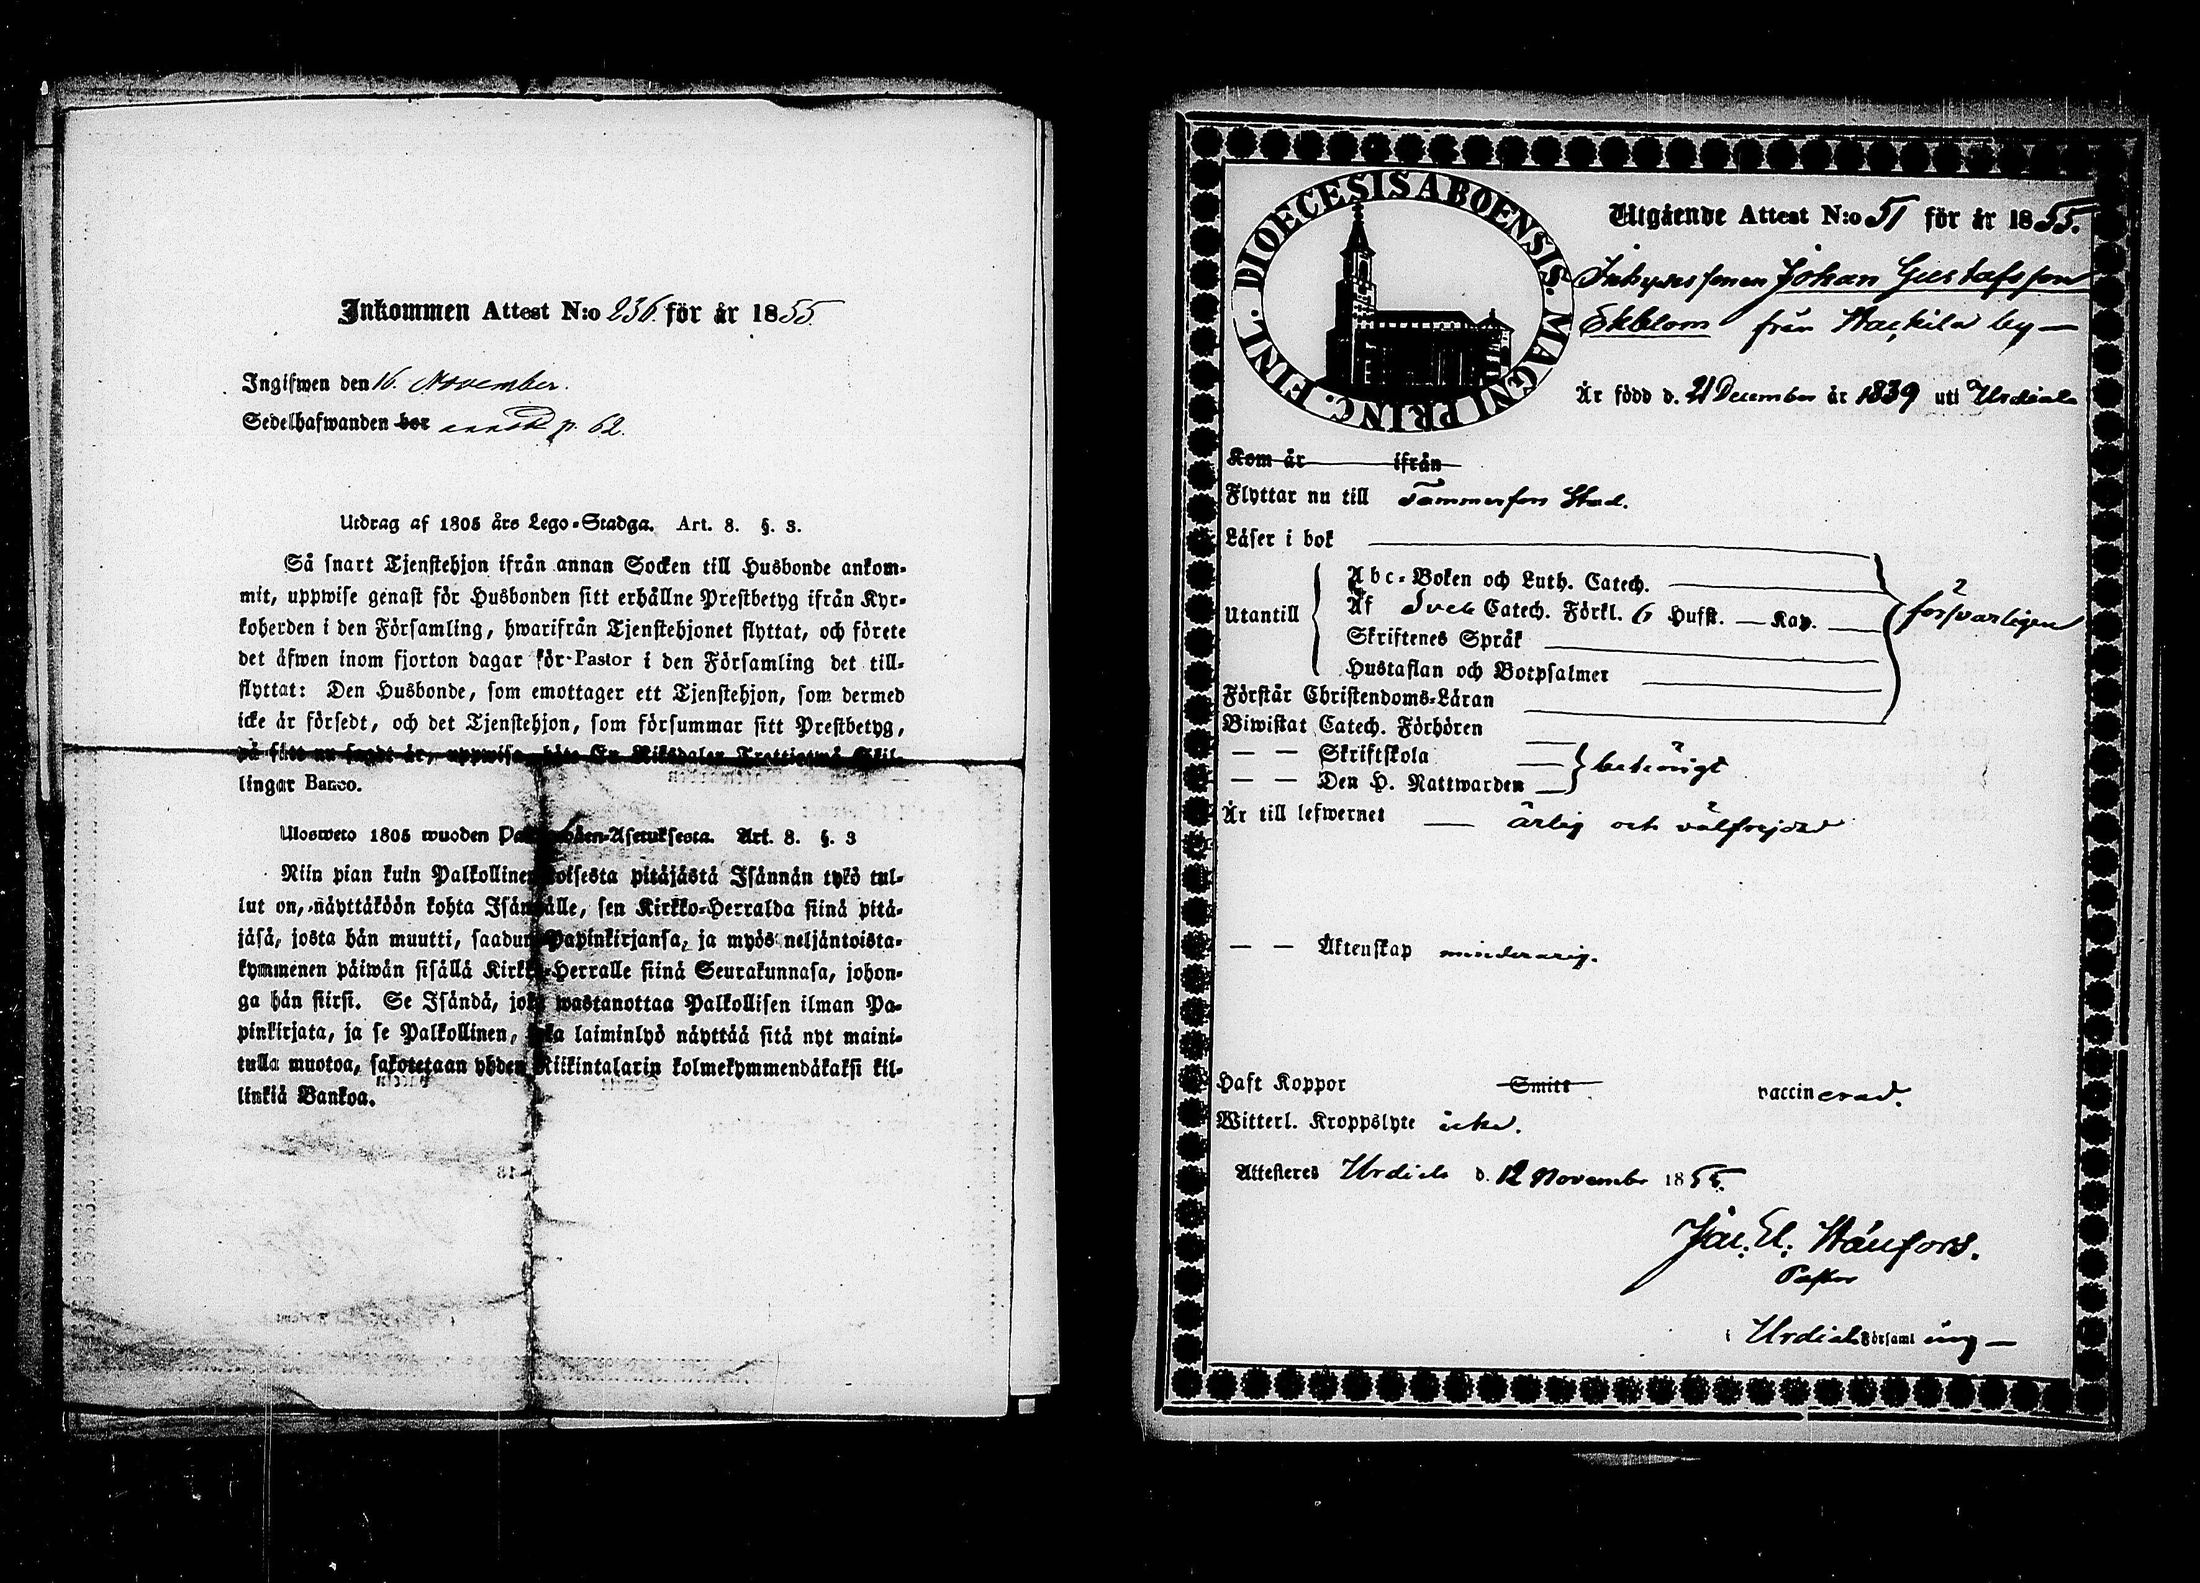 Inkommen Attest N:o 236. för år 1855.
Ingifwen den 16. November.
Sedelhafwanden bor p. 62.
Utdrag af 1805 års Lego-Stadga. Art. 8. §. 3.
Så snart Tjenstehjon ifrån annan Socken till Husbonde ankom-
mit, uppwise genast för Husbonden sitt erhållne Prestbetyg ifrån Kyr-
koherden i den Församling, hwarifrån Tjenstehjonet flyttat, och förete
det äfwen inom fjorton dagar för Pastor i den Församling det till-
flyttat: Den Husbonde, som emottager ett Tjenstehjon, som dermed
icke är försedt, och det Tjenstehjon, som försummar sitt Prestbetyg,
på sätt nu sagdt är, uppwisa, böte En Riksdaler Trettiotwå Skil-
lingar Banco.
Ulosweto 1805 wuoden Asetuksesta. Art. 8. §. 3
Niin pian kuin Palkollinen toisesta pitäjästä Isännän tykö tul-
lut on, näyttäköön kohta Isännälle, sen Kirkko-Herralda siinä pitä-
jäsä, josta hän muutti, saadun Papinkirjansa, ja myös neljäntoista-
kymmenen päiwän sisällä Kirkko-Herralle siinä Seurakunnasa, johon-
ga hän siirsi. Se Isändä, joka wastanottaa Palkollisen ilman Pa-
pinkirjata, ja se Palkollinen, joka laiminlyö näyttää sitä nyt maini-
tulla muotoa, sakotetaan yhden Riikintalarin kolmekymmendäkaksi kil-
linkiä Bankoa.
DIOECESIS ABOENSIS. MAGNI PRINC. FINL.
Utgående Attest N:o 51 för år 1855.
Inhysessonen Johan Gustafsson
Ekblom från by —
Är född d. 21 December år 1839 uti Urdiala
Kom år ifrån
Flyttar nu till Tammerfors Stad.
Läser i bok
Abc-Boken och Luth. Catech.
Utantill Af Sveb Catech. Förkl. 6 Hufst. — Kap. försvarligen
Skriftenes Språk
Hustaflan och Botpsalmer
Förstår Christendoms-Läran
Biwistat Catech. Förhören
— — Skriftskola
— — Den H. Nattwarden behörigt
Är till lefwernet — ärlig och välfrejdad
— — Äktenskap minderårig.
Haft Koppor Smitt vaccinerad.
Witterl. Kroppslyte icke.
Attesteras Urdiala d. 12 November 1855.
Pastor
i Urdiala Församling —